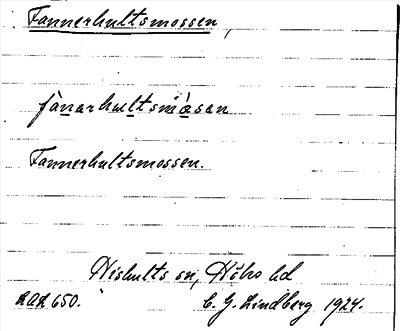 Fannerhultsmossen,
fànarhultsmå̀san
Fannerhultsmossen.
Hishults sn, Höks hd
LAL 650. C. G. Lindberg 1924.